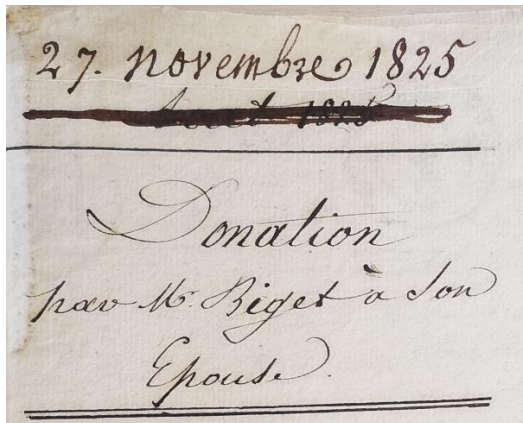 27. novembre 1825
1825
Donation
par Mr. Biget à Son
Epouse.